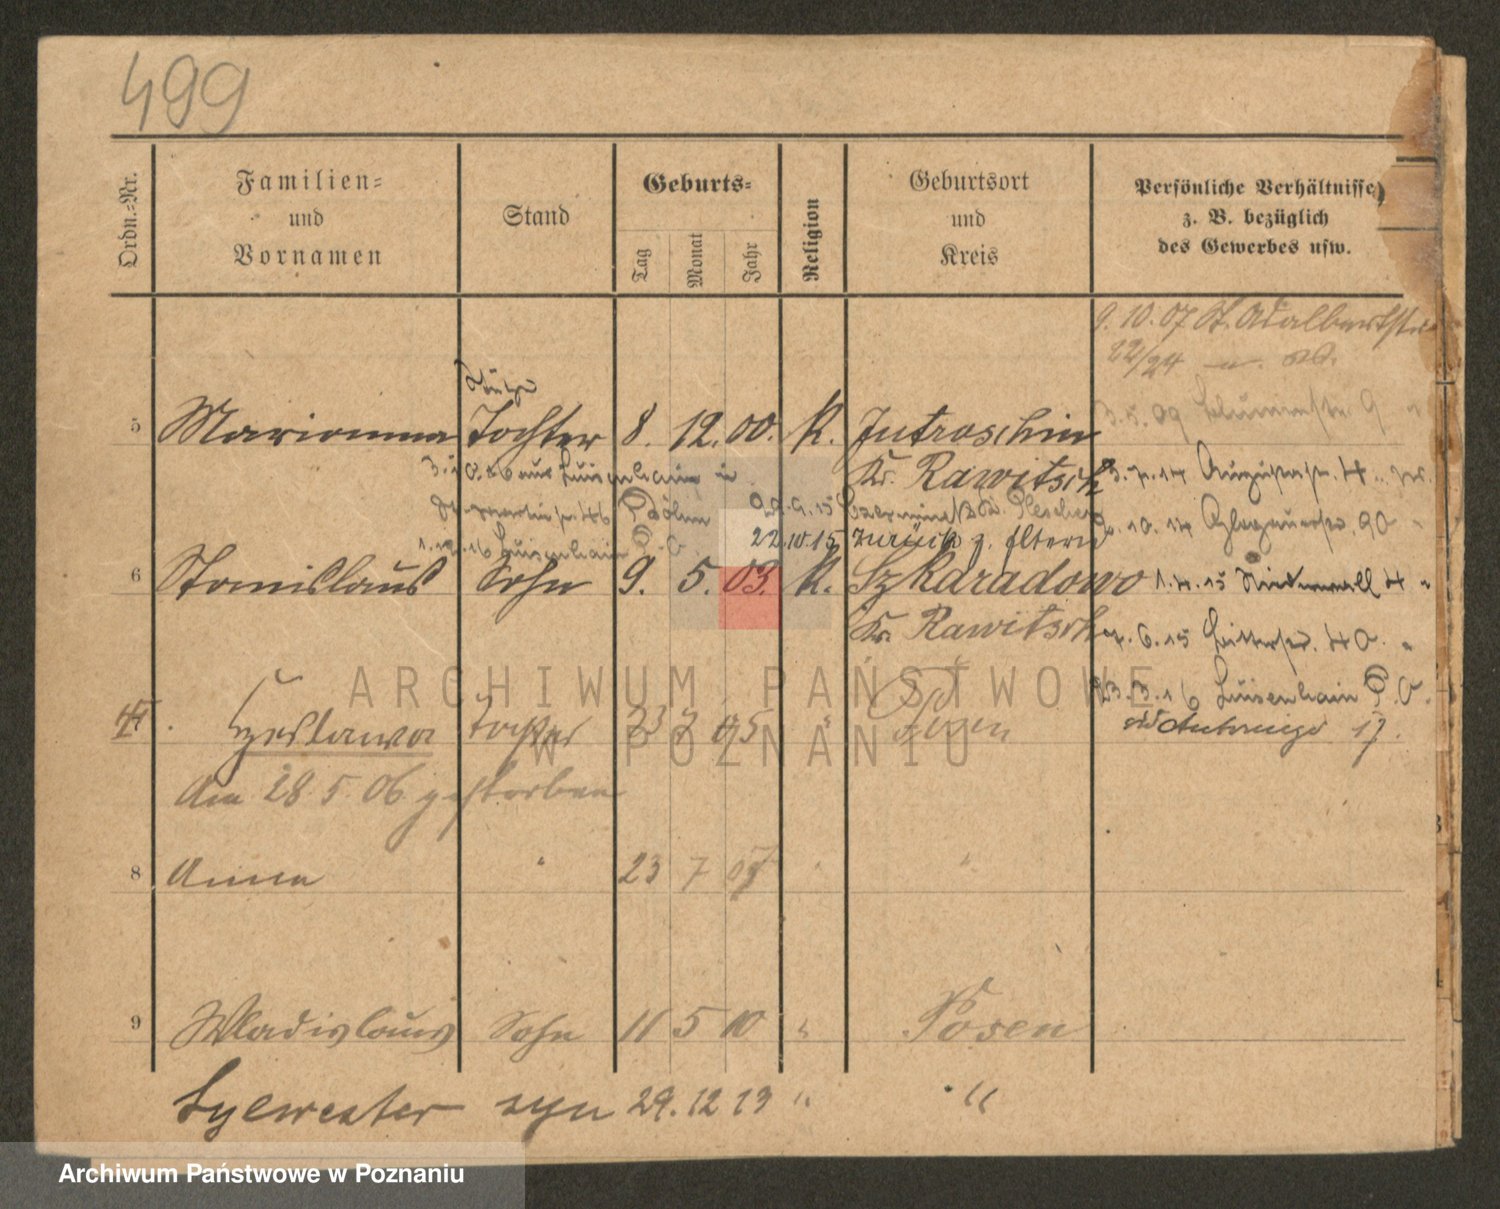 499
Ordn.-Nr.
Familien-
und
Vornamen
Stand
Geburts-
Tag
Monat
Jahr
Religion
Geburtsort
und
Kreis
Persönliche Verhältnisse,
z. B. bezüglich
des Gewerbes usw.
9. 10. 07 St. Adalbertstr.
22/24
Stütze
5 Marianna Tochter 8. 12. 00. K. Jutroschin
3. 5. 09 9
Kr. Rawitsch
3. 7. 14 Augustastr. 4
3. 10. 16 aus Luisenhain in
St. Martinstr. 46 Böhm 29. 9. 15 Pleschen
2. 10. 14 Glogauerstr. 90
1. 12. 16 Luisenhain P. O. 22. 10. 15 zurück z. Eltern
6 Stanislaus Sohn 9. 5. 03. K. Szkaradowo 1. 4. 15 Niederwall 4 "
Kr. Rawitsch
7. 6. 15 40. "
23. 3. 16 Luisenhain P. O.
7. Czesława Tochter 23 7 05 " Posen
17.
Am 28. 5. 06 gestorben
8 Anna " 23 7 07 " "
9 Wladislaus Sohn 11 5 10 " Posen
Sylwester syn 29. 12 13 " "
ARCHIWUM PAŃSTWOWE
W POZNANIU
Archiwum Państwowe w Poznaniu